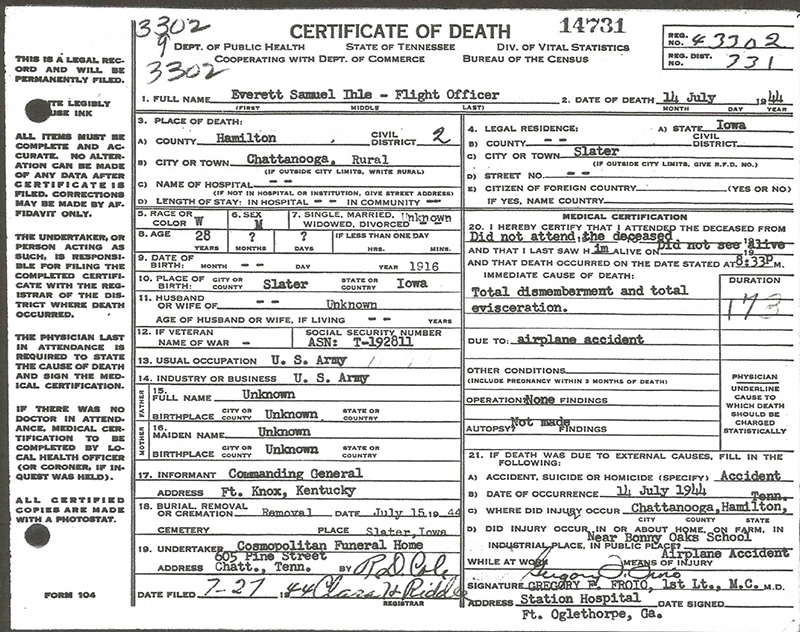 3302
9
3302
CERTIFICATE OF DEATH
14731
DEPT. OF PUBLIC HEALTH STATE OF TENNESSEE DIV. OF VITAL STATISTICS
COOPERATING WITH DEPT. OF COMMERCE BUREAU OF THE CENSUS
REG. NO. 43302
REG. DIST. NO. 331
THIS IS A LEGAL RECORD AND WILL BE PERMANENTLY FILED.
TE LEGIBLY
USE INK
ALL ITEMS MUST BE COMPLETE AND ACCURATE. NO ALTERATION CAN BE MADE OF ANY DATA AFTER CERTIFICATE IS FILED. CORRECTIONS MAY BE MADE BY AFFIDAVIT ONLY.
THE UNDERTAKER, OR PERSON ACTING AS SUCH, IS RESPONSIBLE FOR FILING THE COMPLETED CERTIFICATE WITH THE REGISTRAR OF THE DISTRICT WHERE DEATH OCCURRED.
THE PHYSICIAN LAST IN ATTENDANCE IS REQUIRED TO STATE THE CAUSE OF DEATH AND SIGN THE MEDICAL CERTIFICATION.
IF THERE WAS NO DOCTOR IN ATTENDANCE, MEDICAL CERTIFICATION TO BE COMPLETED BY LOCAL HEALTH OFFICER (OR CORONER, IF INQUEST WAS HELD).
ALL CERTIFIED COPIES ARE MADE WITH A PHOTOSTAT.
FORM 104
1. FULL NAME Everett Samuel Ihle - Flight Officer
(FIRST) MIDDLE LAST)
2. DATE OF DEATH 14 July 1944
MONTH DAY YEAR
3. PLACE OF DEATH:
A) COUNTY Hamilton CIVIL DISTRICT 2
B) CITY OR TOWN Chattanooga, Rural
(IF OUTSIDE CITY LIMITS, WRITE RURAL)
C) NAME OF HOSPITAL --
(IF NOT IN HOSPITAL OR INSTITUTION, GIVE STREET ADDRESS)
D) LENGTH OF STAY: IN HOSPITAL -- IN COMMUNITY --
4. LEGAL RESIDENCE: A) STATE Iowa
B) COUNTY -- CIVIL DISTRICT
C) CITY OR TOWN Slater
(IF OUTSIDE CITY LIMITS, GIVE R.F.D. NO.)
D) STREET NO. --
E) CITIZEN OF FOREIGN COUNTRY (YES OR NO)
IF YES, NAME COUNTRY
5. RACE OR COLOR W
6. SEX M
7. SINGLE, MARRIED, WIDOWED, DIVORCED Unknown
8. AGE 28 YEARS ? MONTHS ? DAYS IF LESS THAN ONE DAY HRS. MINS.
9. DATE OF BIRTH: MONTH -- DAY YEAR 1916
10. PLACE OF BIRTH CITY OR COUNTY Slater STATE OR COUNTRY Iowa
11. HUSBAND OR WIFE OF -- Unknown
AGE OF HUSBAND OR WIFE, IF LIVING -- YEARS
12. IF VETERAN NAME OF WAR -
SOCIAL SECURITY NUMBER
ASN: T-192811
13. USUAL OCCUPATION U. S. Army
14. INDUSTRY OR BUSINESS U. S. Army
FATHER
15. FULL NAME Unknown
BIRTHPLACE CITY OR COUNTY Unknown STATE OR COUNTRY
MOTHER
16. MAIDEN NAME Unknown
BIRTHPLACE CITY OR COUNTY Unknown STATE OR COUNTRY
17. INFORMANT Commanding General
ADDRESS Ft. Knox, Kentucky
18. BURIAL, REMOVAL OR CREMATION Removal DATE July 15, 1944
CEMETERY PLACE Slater, Iowa
19. UNDERTAKER Cosmopolitan Funeral Home
605 Pine Street
ADDRESS Chatt., Tenn. BY R D Cole
DATE FILED 7-27 1944 Clara H Riddle
REGISTRAR
MEDICAL CERTIFICATION
20. I HEREBY CERTIFY THAT I ATTENDED THE DECEASED FROM
Did not attend the deceased
AND THAT I LAST SAW Him Did not see ALIVE ON 19
AND THAT DEATH OCCURRED ON THE DATE STATED AT 8:33P M.
IMMEDIATE CAUSE OF DEATH:
Total dismemberment and total
evisceration.
DURATION
173
DUE TO: airplane accident
OTHER CONDITIONS
(INCLUDE PREGNANCY WITHIN 3 MONTHS OF DEATH)
OPERATION? None FINDINGS
AUTOPSY? Not made FINDINGS
PHYSICIAN
UNDERLINE CAUSE TO WHICH DEATH SHOULD BE CHARGED STATISTICALLY
21. IF DEATH WAS DUE TO EXTERNAL CAUSES, FILL IN THE FOLLOWING:
A) ACCIDENT, SUICIDE OR HOMICIDE (SPECIFY) Accident
B) DATE OF OCCURRENCE 14 July 1944
Tenn.
C) WHERE DID INJURY OCCUR Chattanooga, Hamilton,
CITY COUNTY STATE
D) DID INJURY OCCUR IN OR ABOUT HOME, ON FARM, IN
Near Bonny Oaks School
INDUSTRIAL PLACE, IN PUBLIC PLACE?
Airplane Accident
WHILE AT WORK MEANS OF INJURY
SIGNATURE GREGORY F. FROIO, 1st Lt., M.C. M.D.
ADDRESS Station Hospital DATE SIGNED
Ft. Oglethorpe, Ga.